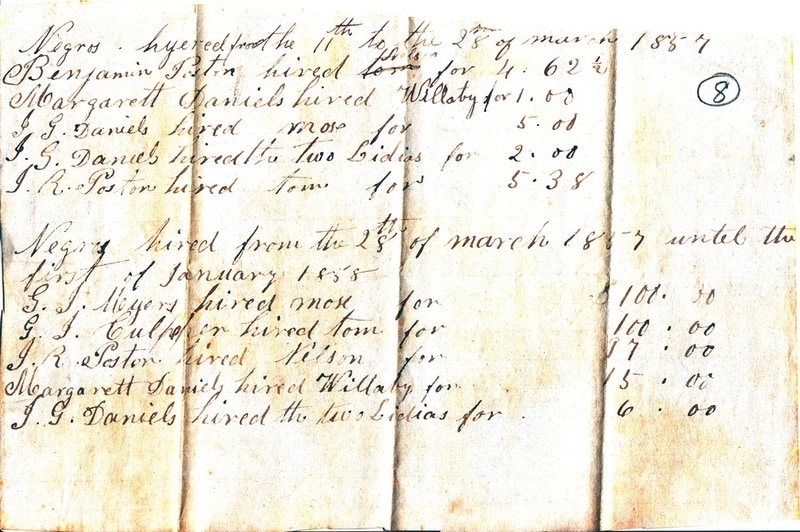 Negros . hyered from the 11th to the 28th of march 1857
Benjamin Poston hired for 4. 62 ½
Margarett Daniels hired Willaby for 1. 00
J G. Daniels hired mose for 5. 00
J. G. Daniels hired th two Lidias for 2. 00
J. R. Poston hired tom for 5. 38
8
Negros hired from the 28th of march 1857 until the
first of January 1858
G. J. Meyers hired mose for $ 100. 00
G. J. Culpeper hired tom for 100. 00
J R. Poston hired Nelson for 17. 00
Margarett Daniels hired Willaby for 15. 00
J. G. Daniels hired th two Lidias for . 6. 00